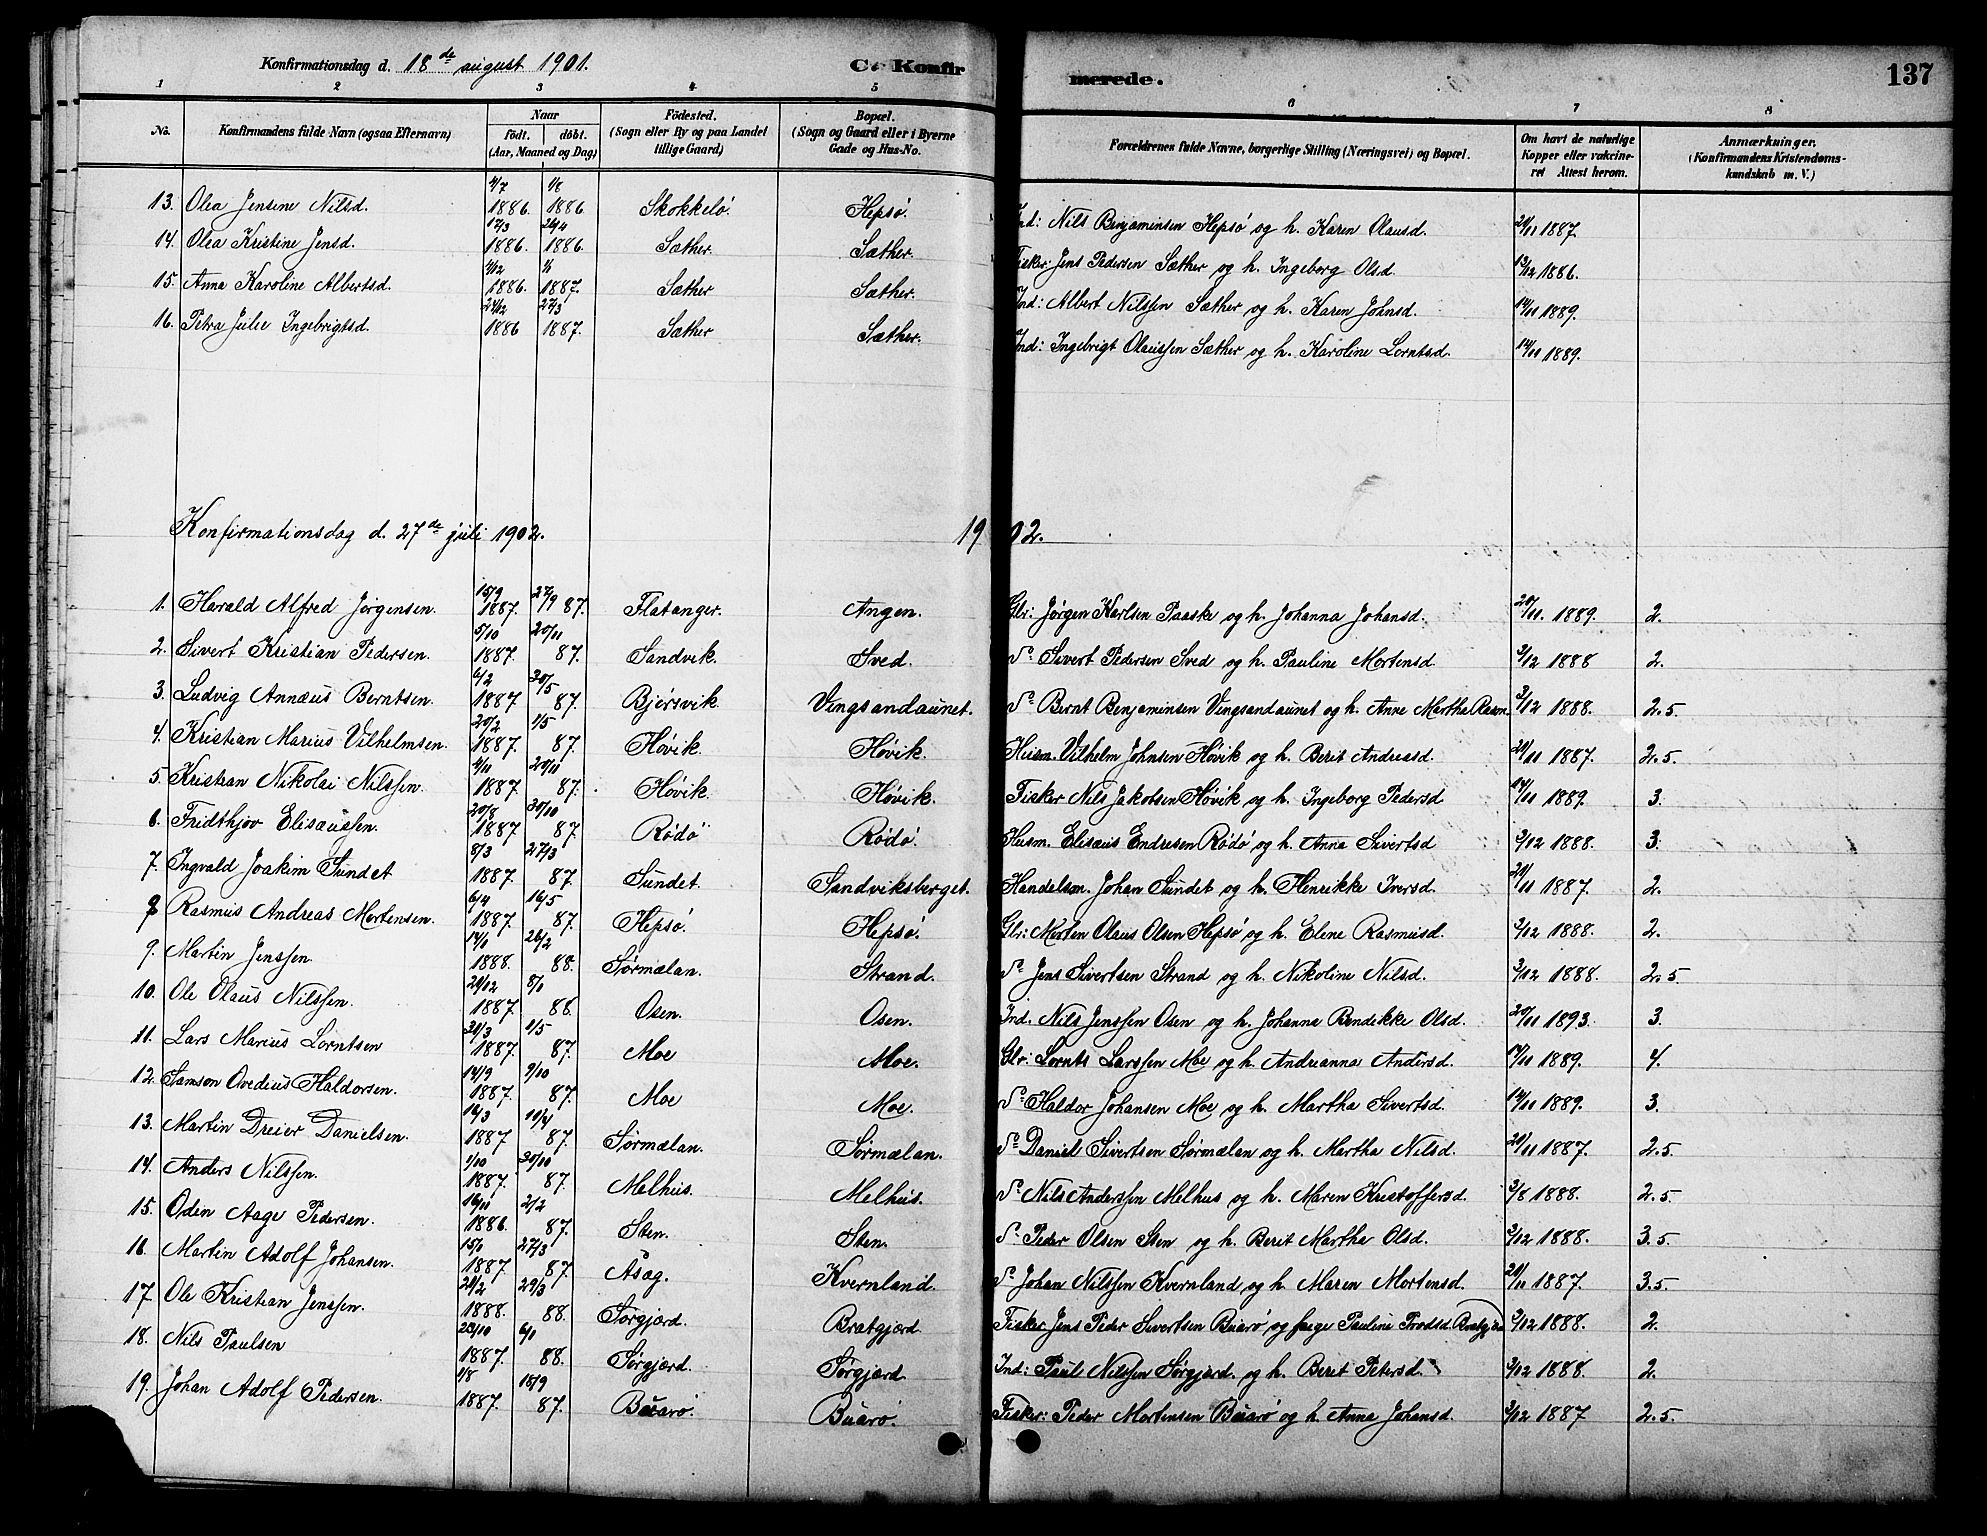 Konfirmationsdag d. 18de august 1901. C. Konfirmerede. 137
1 2 3 4 5 6 7 8
No. Konfirmandens fulde Navn (ogsaa Efternavn) Naar født. døbt. (Aar, Maaned og Dag) Födested. (Sogn eller By og paa Landet tillige Gaard) Bopæl. (Sogn og Gaard eller i Byerne Gade og Hus-No. Forældrenes fulde Navne, borgerlige Stilling (Næringsvei) og Bopæl. Om havt de naturlige Kopper eller vakcineret Attest herom. Anmærkninger. (Konfirmandens Kristendomskundskab m. V.)
13. Olea Jensine Nilsd. 4/7 1886. 1/8 1886 Skokkelø. Hepsø. Ind: Nils Benjaminsen Hepsø og h. Karen Olausd. 21/11 1887.
14. Olea Kristine Jensd. 17/3 1886. 26/4 1886. Sæther. Sæther. Fisker: Jens Pedersen Sæther og h. Ingeborg Olsd. 13/12 1886.
15. Anna Karoline Albertsd. 4/12 1886. 1/1 1887. Sæther Sæther. Ind: Albert Nilssen Sæther og h. Karen Johnsd. 14/11 1889.
16. Petra Julie Ingebrigtsd. 24/12 1886 27/3 1887. Sæther Sæther. Ind: Ingebrigt Olaussen Sæther og h. Karoline Lorntsd. 14/11 1889.
Konfirmationsdag d. 27de juli 1902. 1902.
1. Harald Alfred Jørgensen. 15/9 1887. 27/9 87. Flatanger. Angen. Gbr: Jørgen Karlsen Paaske og h. Johanna Johansd. 20/11. 1889. 2.
2. Sivert Kristian Pedersen. 5/10 1887. 20/11 87. Sandvik. Sved. Do Sivert Pedersen Sved og h. Pauline Mortensd. 3/12 1888 2.
3. Ludvig Annæus Berntsen. 6/2 1887 30/5 87. Bjørsvik. Vingsandaunet. Do Bernt Benjaminsen Vingsandaunet og h. Anne Martha Rasm. 3/12 1888. 2.5
4. Kristian Marius Vilhelmsen. 20/2 1887. 1/5 87. Høvik. Høvik. Husm. Vilhelm Johnsen Høvik og h. Berit Andreasd. 21/11 1887. 2.5
5. Kristian Nikolai Nilssen. 4/11 1887. 20/11 87. Høvik. Høvik. Fisker Nils Jakobsen Høvik og h. Ingeborg Pedersd 14/11 1889. 3.
6. Fridthjov Elisæussen. 20/8 1887 30/10 87. Rødø Rødø. Husm. Elisæus Endresen Rødø og h. Anna Sivertsd 3/12 1888. 3.
7. Ingvald Joakim Sundet 8/3 1887. 27/3 87. Sundet. Sandviksberget. Handelsm. Johan Sundet og h. Henrikke Iversd. 21/11 1887. 2.
8 Rasmus Andreas Mortensen. 6/4 1887. 16/5 87. Hepsø. Hepsø. Gbr: Morten Olaus Olsen Hepsø og h. Elene Rasmusd. 3/12 1888. 2.
9. Martin Jenssen. 14/1 1888. 26/2 88. Sørmælan. Strand. Do Jens Sivertsen Strand og h. Nikoline Nilsd. 3/12 1888. 2.5
10. Ole Olaus Nilssen. 21/12 1887. 8/1 88. Osen. Osen. Ind. Nils Jenssen Osen og h. Johanna Bendikke Olsd. 20/11 1893. 3.
11. Lars Marius Lorntsen 31/3 1887. 1/5 87. Moe Moe. Gbr: Lornts Larssen Moe og h. Andrianna Andersd. 14/11 1889. 4.
12. Samson Ovedius Haldorsen. 14/9 1887. 9/10 87. Moe Moe. Do Haldor Johansen Moe og h. Martha Sivertsd. 14/11 1889. 3.
13. Martin Dreier Danielsen. 16/3 1887 11/4 87. Sørmælan. Sørmælan. Do Daniel Sivertsen Sørmælan og h. Martha Nilsd. 21/11 1887. 2.5
14. Anders Nilssen. 1/10 1887. 30/10 87. Melhus. Melhus. Do Nils Anderssen Melhus og h. Maren Kristoffersd. 3/8 1888. 2.5
15. Oden Aage Pedersen. 16/11 1886. 2/2 87. Sten. Sten. Do Peder Olsen Sten og h. Berit Martha Olsd. 3/12 1888. 3.5
16. Martin Adolf Johansen. 15/1 1887 27/3 87. Åsag. Kvernland. Do Johan Nilssen Kvernland og h. Maren Mortensd. 21/11 1887. 3.5
17. Ole Kristian Jenssen. 21/2 1888. 29/3 88. Sørgjærd. Bratgjærd Fisker Jens Peder Sivertsen Buarø og pige Pauline 3/12 1888. 2.
18. Nils Paulsen 28/10 1887. 6/1 88. Sørgjærd. Sørgjærd Ind: Paul Nilssen Sørgjærd. og h. Berit Petersd. 3/12 1888. 2.
19. Johan Adolf Pedersen. 1/8 1887. 18/9 87. Buarø. Buarø. Fisker: Peder Mortensen Buarø og h. Anna Johansd. 3/12 1887 2.5.